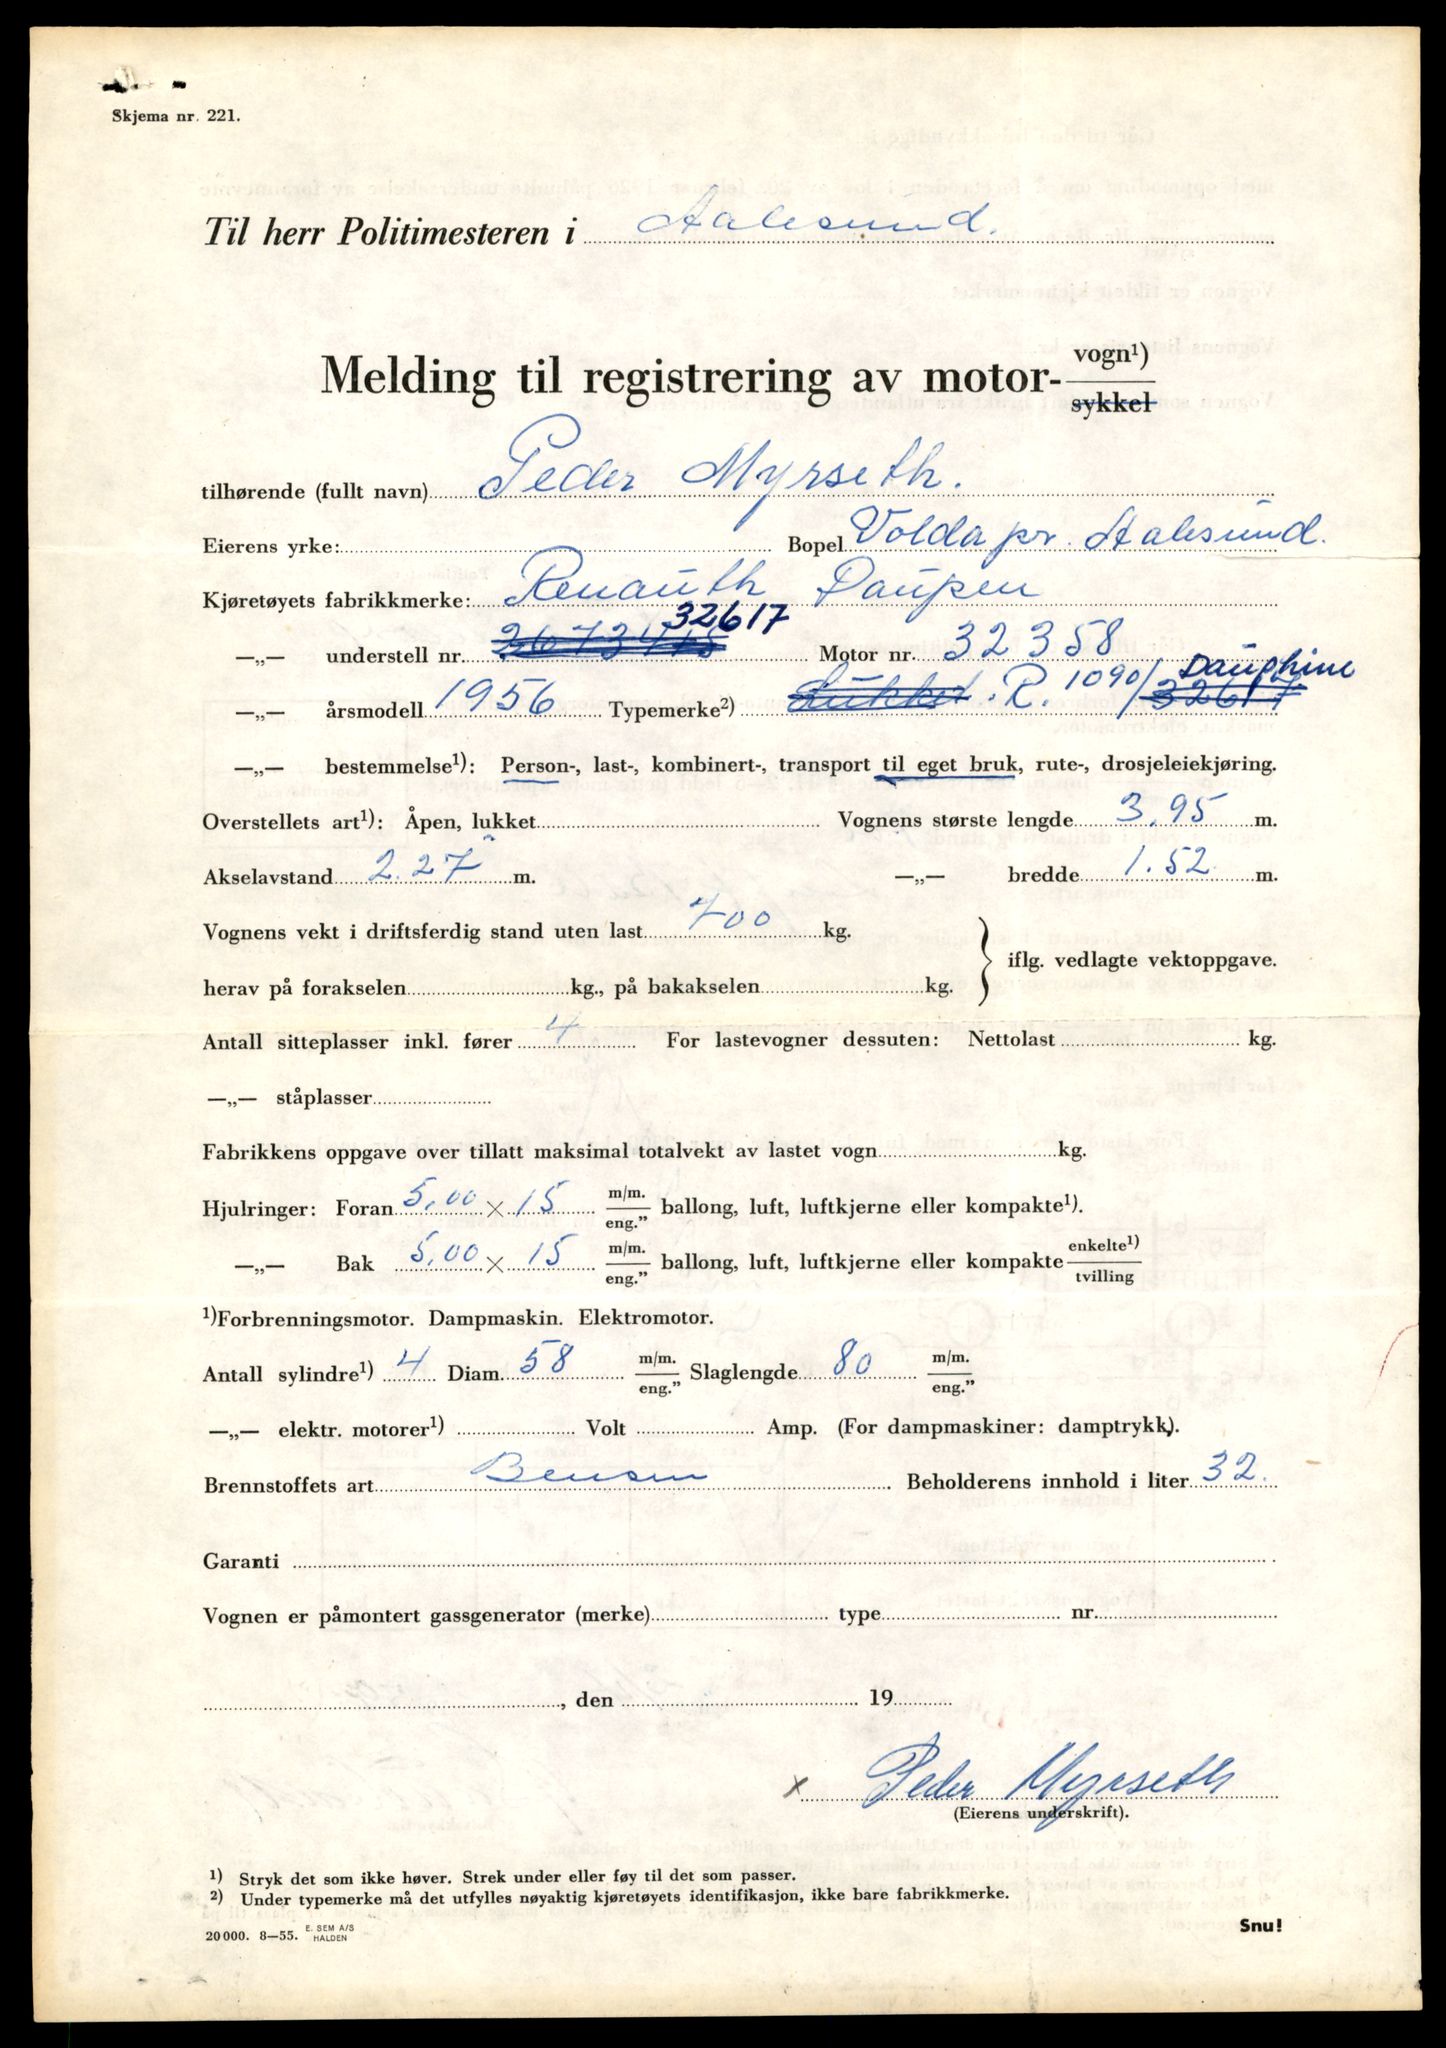 Skjema nr. 221.
Til herr Politimesteren i Aalesund.
Melding til registrering av motor- vogn¹) / sykkel
tilhørende (fullt navn) Peder Myrseth.
Eierens yrke: Bopel Volda pr. Aalesund.
Kjøretøyets fabrikkmerke: Renauth Daupen
32617
—„— understell nr. Motor nr. 32358
—„— årsmodell 1956 Typemerke²) Lukket. R. 1090/32617 Dauphine
—„— bestemmelse¹): Person-, last-, kombinert-, transport til eget bruk, rute-, drosjeleiekjøring.
Overstellets art¹): Åpen, lukket Vognens største lengde 3,95 m.
Akselavstand 2.27 m. —„— bredde 1.52 m.
Vognens vekt i driftsferdig stand uten last 700 kg.
iflg. vedlagte vektoppgave.
herav på forakselen kg., på bakakselen kg.
Antall sitteplasser inkl. fører 4 For lastevogner dessuten: Nettolast kg.
—„— ståplasser
Fabrikkens oppgave over tillatt maksimal totalvekt av lastet vogn kg.
Hjulringer: Foran 5,00 × 15 m/m. / eng.” ballong, luft, luftkjerne eller kompakte¹).
—„— Bak 5,00 × 15 m/m. / eng.” ballong, luft, luftkjerne eller kompakte enkelte¹) / tvilling
¹)Forbrenningsmotor. Dampmaskin. Elektromotor.
Antall sylindre¹) 4 Diam. 58 m/m. / eng.” Slaglengde 80 m/m. / eng.”
—„— elektr. motorer¹) Volt Amp. (For dampmaskiner: damptrykk).
Brennstoffets art Bensin Beholderens innhold i liter 32.
Garanti
Vognen er påmontert gassgenerator (merke) type nr.
, den 19
x Peder Myrseth
(Eierens underskrift).
¹) Stryk det som ikke høver. Strek under eller føy til det som passer.
²) Under typemerke må det utfylles nøyaktig kjøretøyets identifikasjon, ikke bare fabrikkmerke.
20000. 8—55. E. SEM A/S HALDEN
Snu!